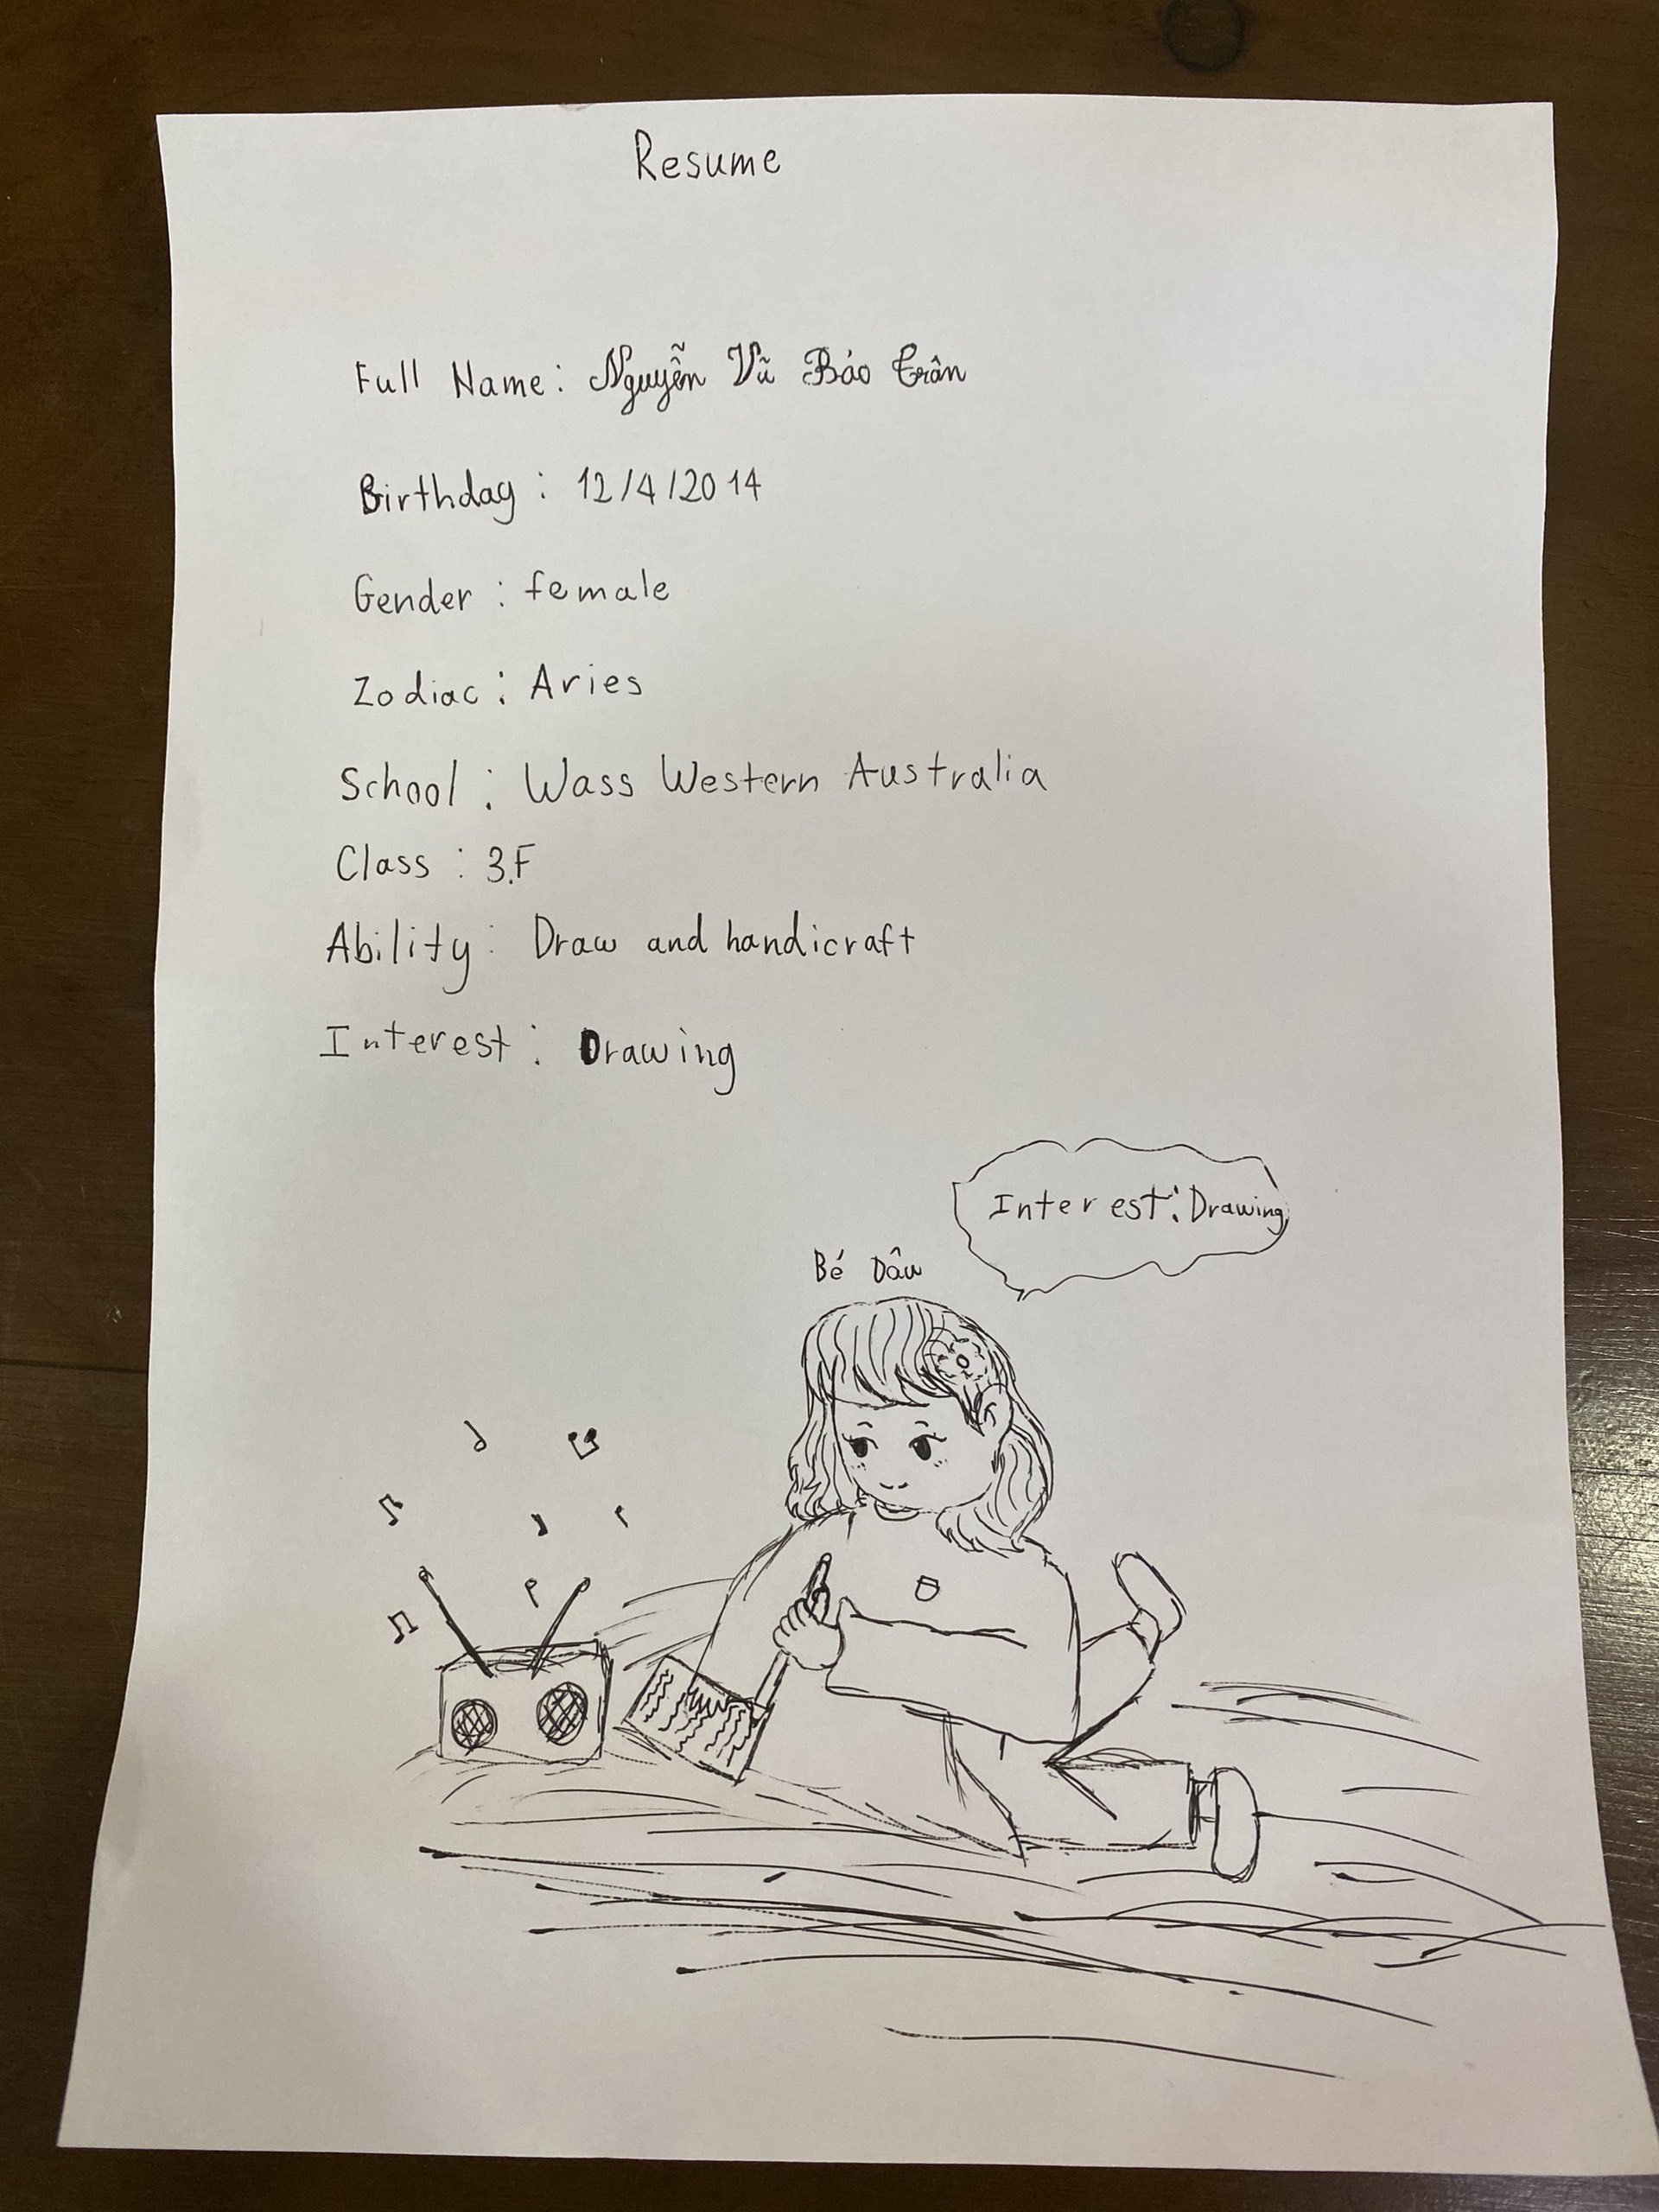 Resume
Full Name: Nguyễn Vũ Bảo Trân
Birthday : 12/4/2014
Gender : female
Zodiac : Aries
School : Wass Western Australia
Class : 3.F
Ability : Draw and handicraft
Interest : Drawing
Interest : Drawing
Bé Dâu